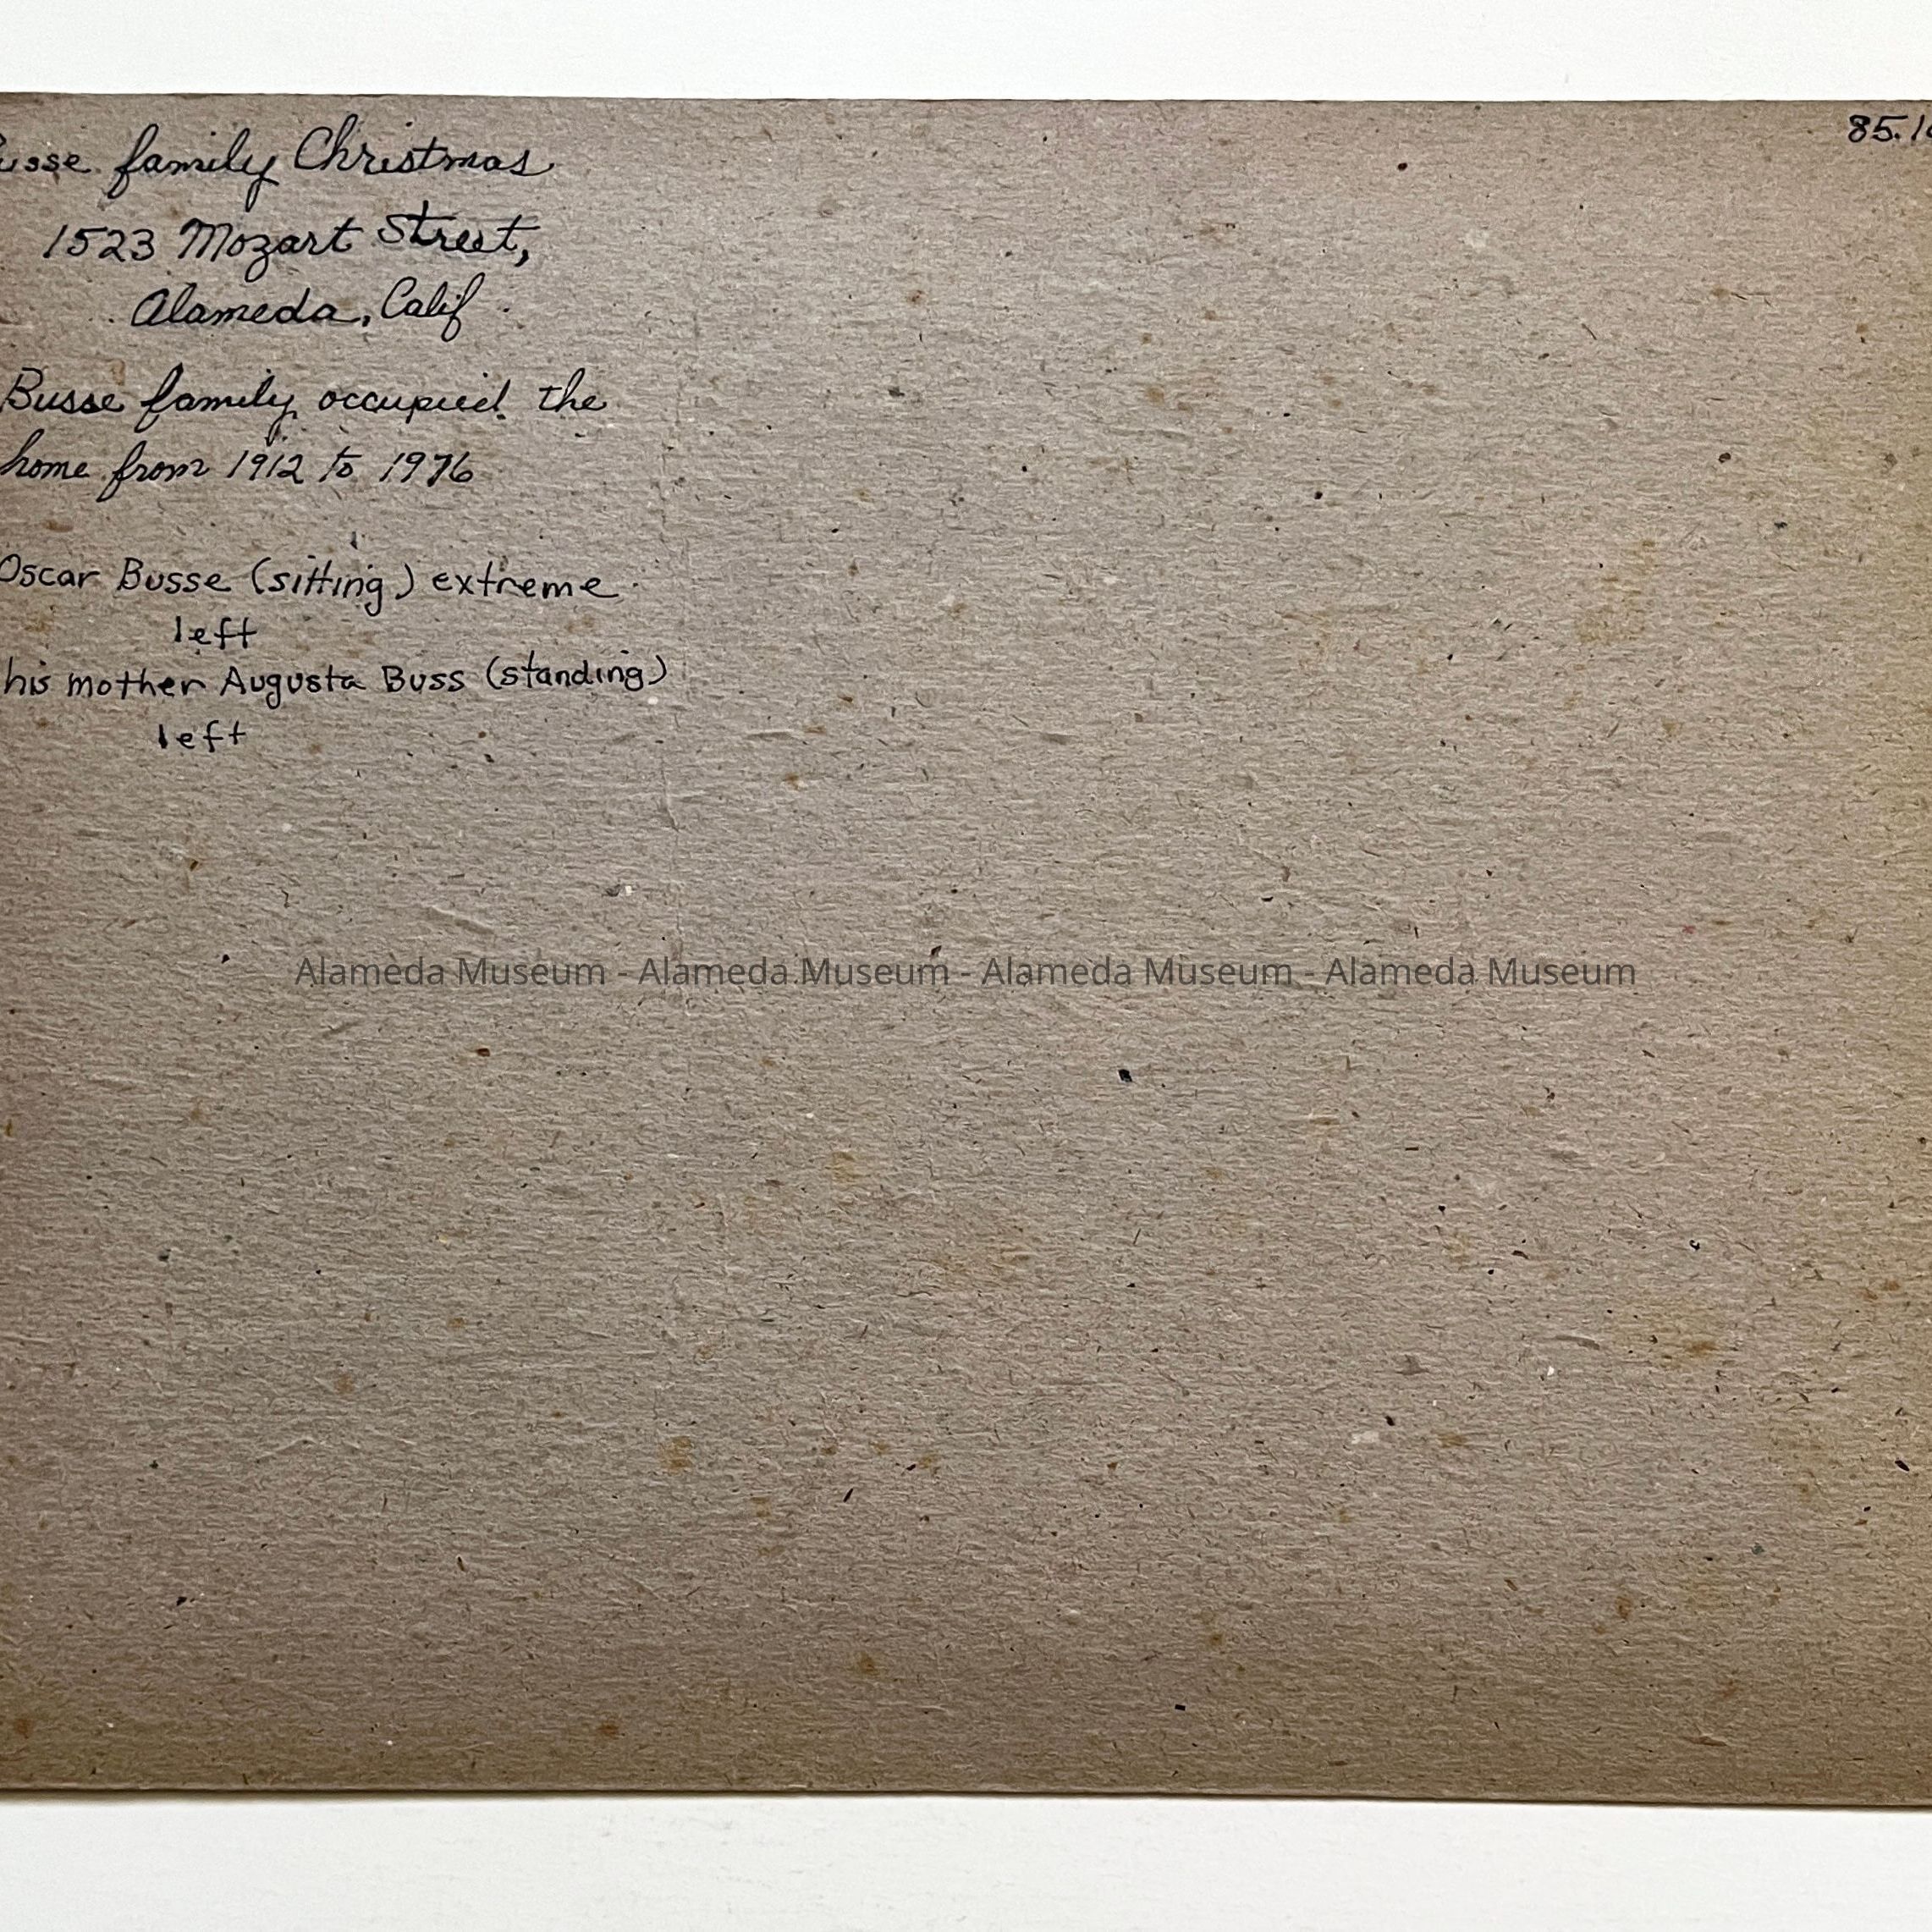 Busse family Christmas
85.1
1523 Mozart Street,
Alameda, Calif.
Busse family occupied the
home from 1912 to 1976
Oscar Busse (sitting) extreme
left
his mother Augusta Buss (standing)
left
Alameda Museum - Alameda Museum - Alameda Museum - Alameda Museum